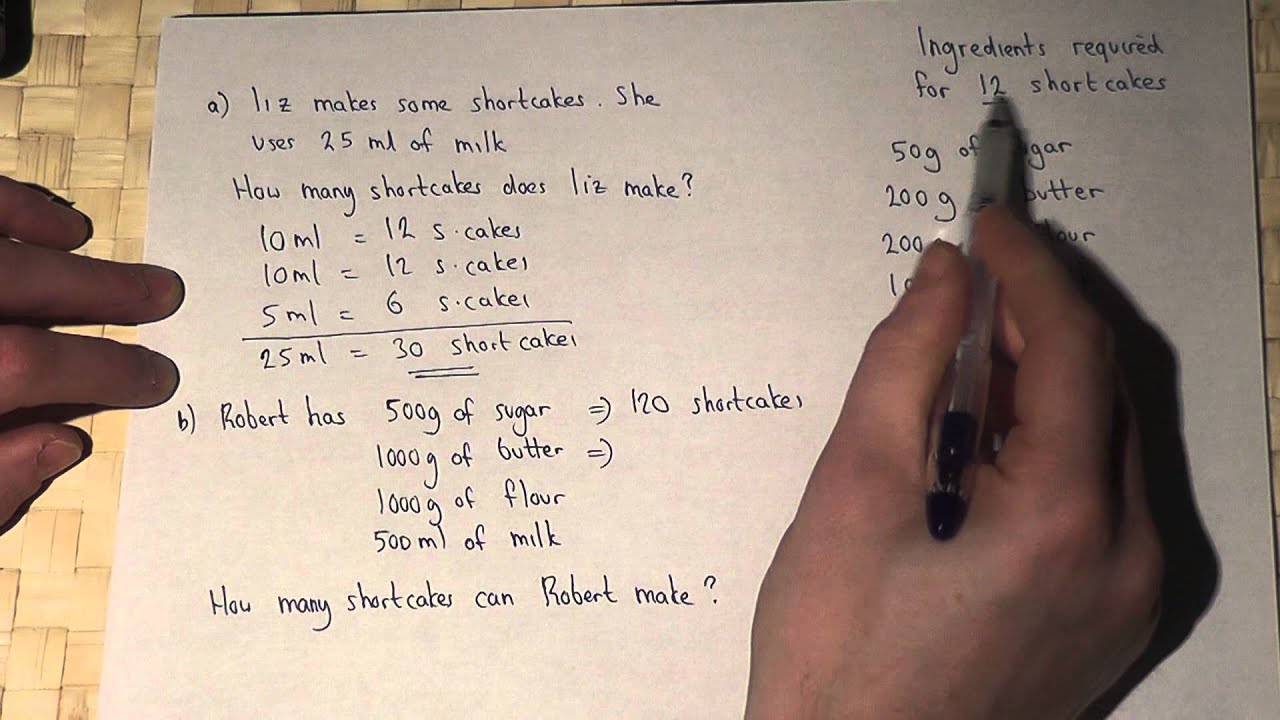 a) Liz makes some shortcakes. She
uses 25 ml of milk
How many shortcakes does Liz make?
10ml = 12 s.cakes
10ml = 12 s.cakes
5ml = 6 s.cakes
25ml = 30 shortcakes
b) Robert has 500g of sugar => 120 shortcakes
1000g of butter =>
1000g of flour
500ml of milk
How many shortcakes can Robert make?
Ingredients required
for 12 shortcakes
50g of
200g butter
200